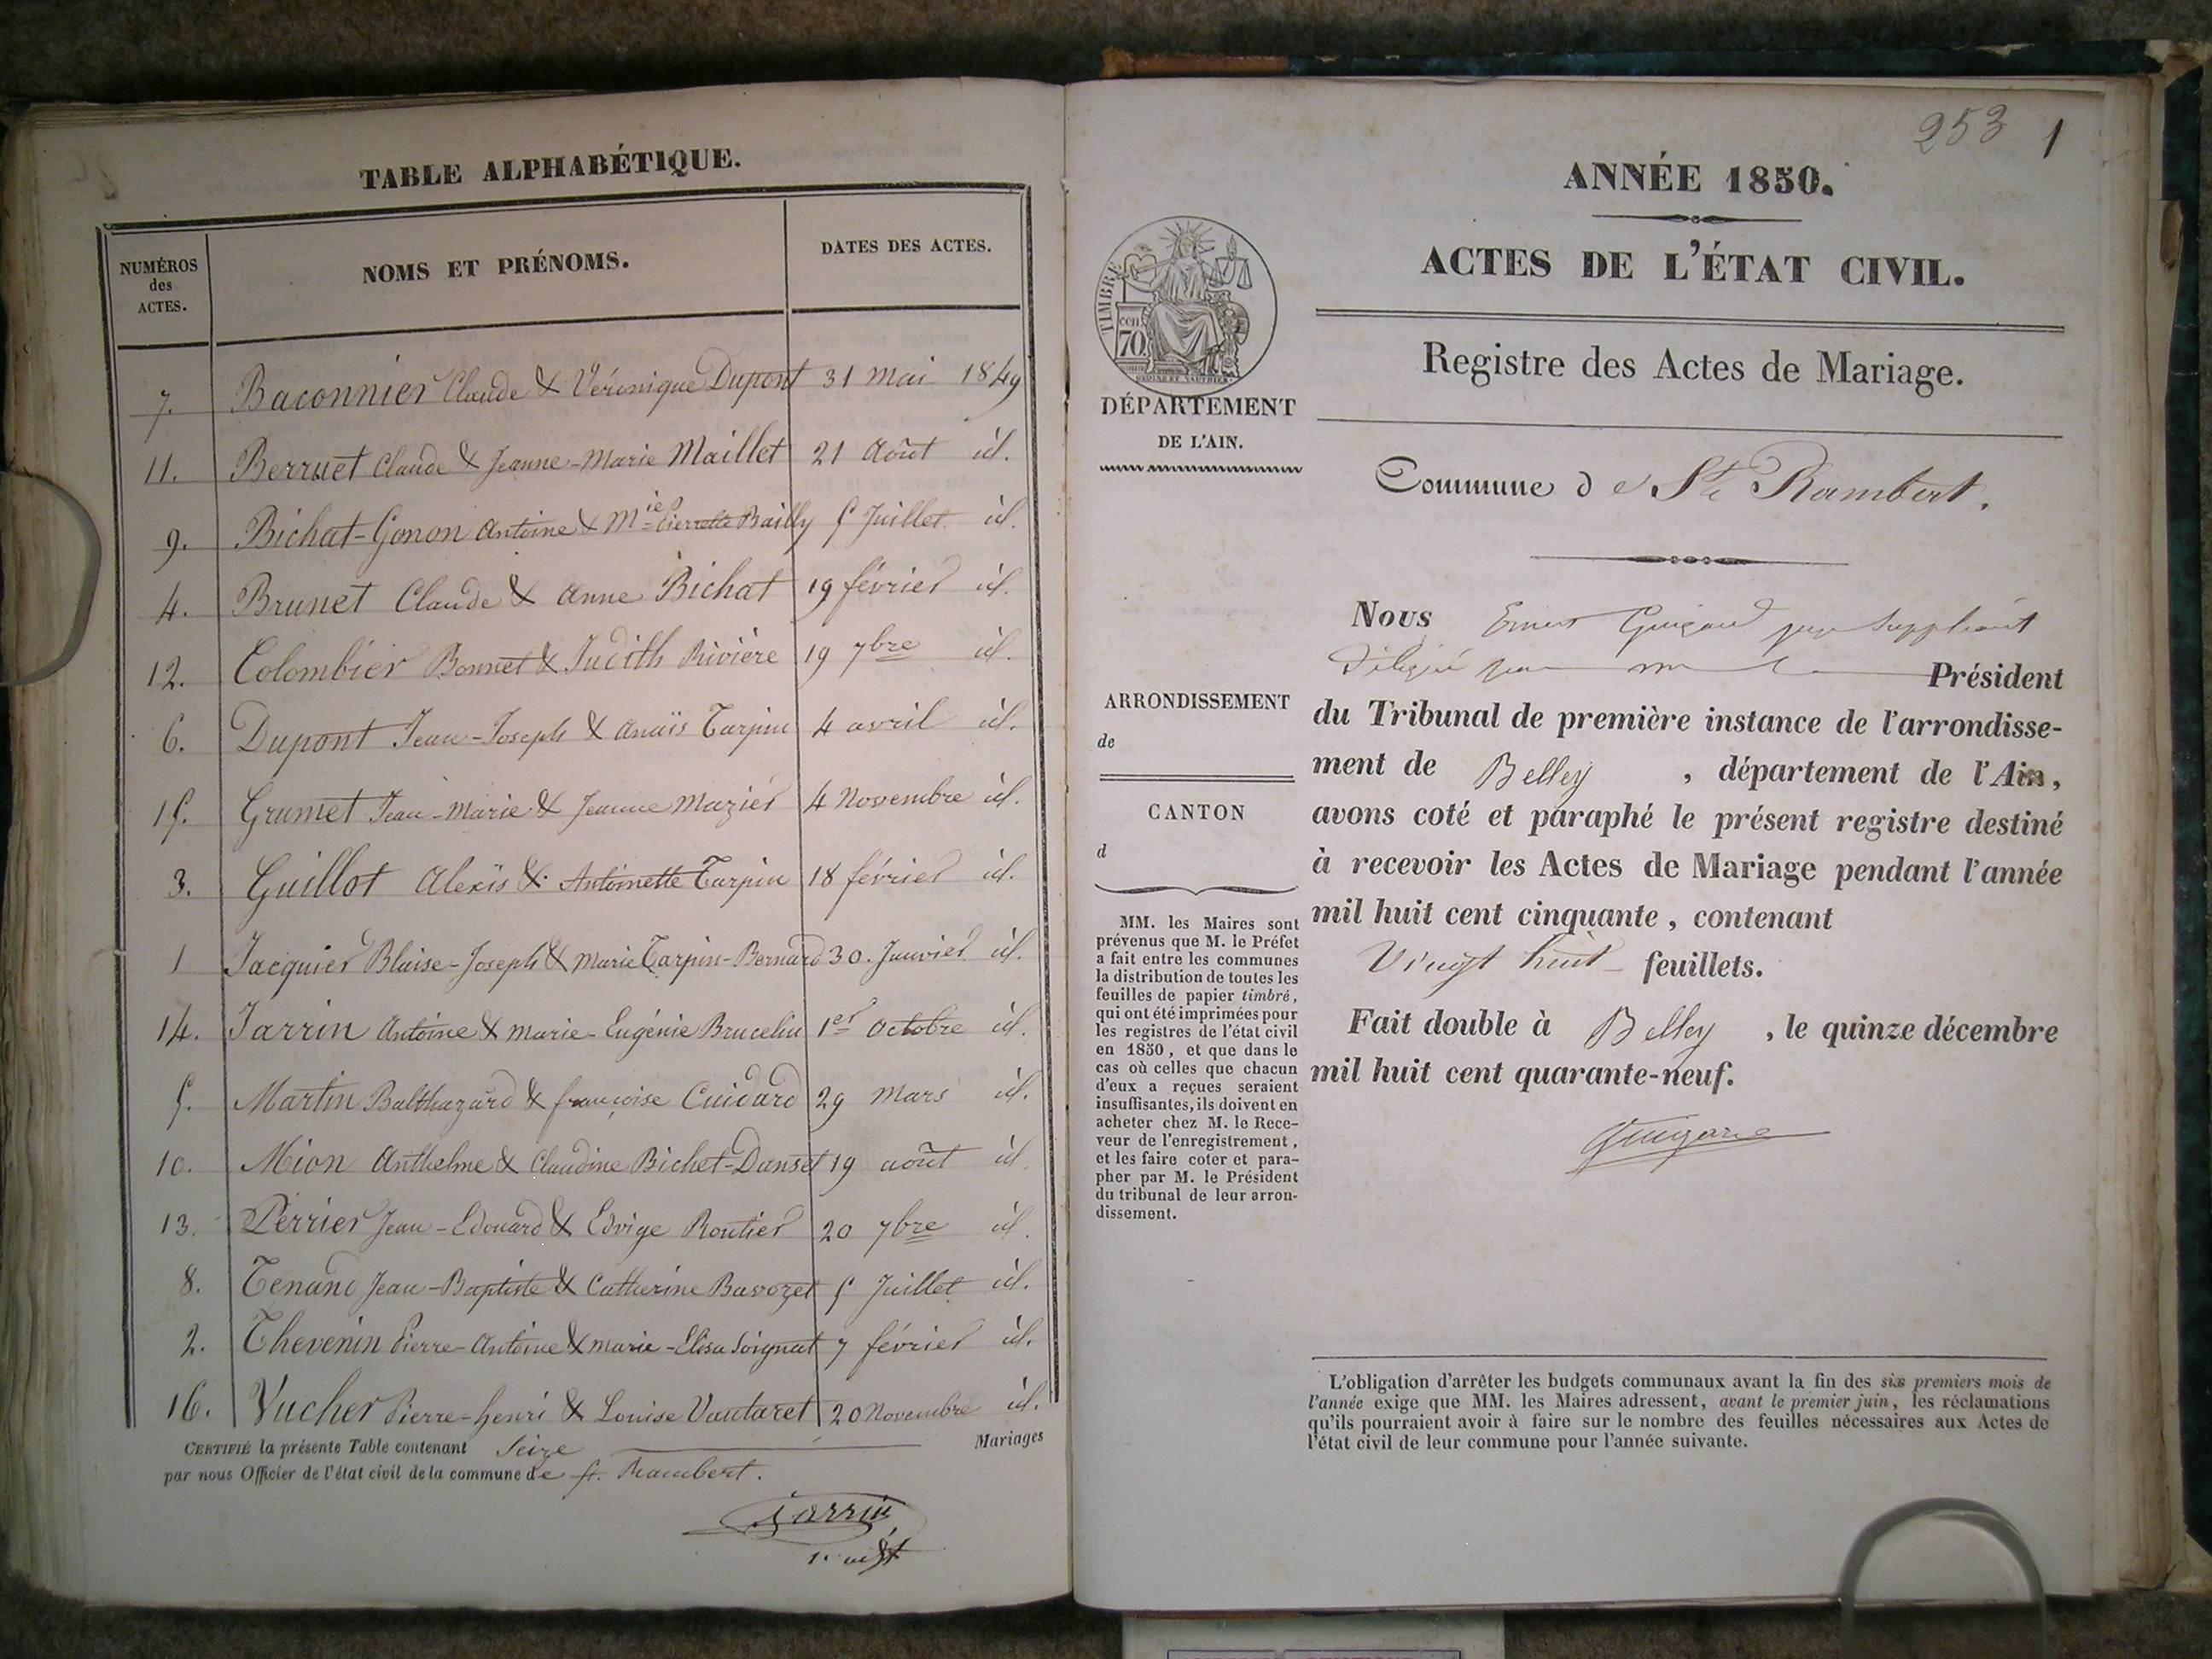 TABLE ALPHABÉTIQUE.
NUMÉROS des ACTES.
NOMS ET PRÉNOMS.
DATES DES ACTES.
7. Baconnier Claude & Véronique Dupont 31 mai 1849
11. Berruet Claude & Jeanne-Marie Maillet 21 Août id.
9. Bichat-Gonon Antoine & Mie Pierrette Bailly 5 Juillet id.
4. Brunet Claude & Anne Bichat 19 février id.
12. Colombier Bonnet & Judith Rivière 19 7bre id.
6. Dupont Jean-Joseph & Anaïs Tarpin 4 avril id.
15. Grumet Jean-Marie & Jeanne Mazier 4 Novembre id.
3. Guillot Alexis & Antoinette Tarpin 18 février id.
1 Jacquier Blaise-Joseph & Marie Tarpin-Bernard 30. Janvier id.
14. Jarrin Antoine & Marie-Eugénie Brucelin 1er Octobre id.
5. Martin Balthazard & françoise Cuidard 29 Mars id.
10. Mion Anthelme & Claudine Bichet-Danset 19 août id.
13. Perrier Jean-Edouard & Edvige Routier 20 7bre id.
8. Tenand Jean-Baptiste & Catherine Bavozet 5 Juillet id.
2. Thevenin Pierre-Antoine & Marie-Elisa Soignat 7 février id.
16. Vucher Pierre-henri & Louise Vautaret 20 Novembre id.
CERTIFIÉ la présente Table contenant Seize Mariages
par nous Officier de l'état civil de la commune de St. Rambert.
Jarrin
253 1
ANNÉE 1850.
ACTES DE L'ÉTAT CIVIL.
Registre des Actes de Mariage.
TIMBRE
70 cen
DÉPARTEMENT
DE L'AIN.
Commune de St Rambert.
ARRONDISSEMENT
de
CANTON
d
MM. les Maires sont
prévenus que M. le Préfet
a fait entre les communes
la distribution de toutes les
feuilles de papier timbré,
qui ont été imprimées pour
les registres de l'état civil
en 1850, et que dans le
cas où celles que chacun
d'eux a reçues seraient
insuffisantes, ils doivent en
acheter chez M. le Rece-
veur de l'enregistrement,
et les faire coter et para-
pher par M. le Président
du tribunal de leur arron-
dissement.
Nous Ernest Guigard juge suppléant
Président
du Tribunal de première instance de l'arrondisse-
ment de Belley, département de l'Ain,
avons coté et paraphé le présent registre destiné
à recevoir les Actes de Mariage pendant l'année
mil huit cent cinquante, contenant
Vingt huit feuillets.
Fait double à Belley, le quinze décembre
mil huit cent quarante-neuf.
L'obligation d'arrêter les budgets communaux avant la fin des six premiers mois de
l'année exige que MM. les Maires adressent, avant le premier juin, les réclamations
qu'ils pourraient avoir à faire sur le nombre des feuilles nécessaires aux Actes de
l'état civil de leur commune pour l'année suivante.